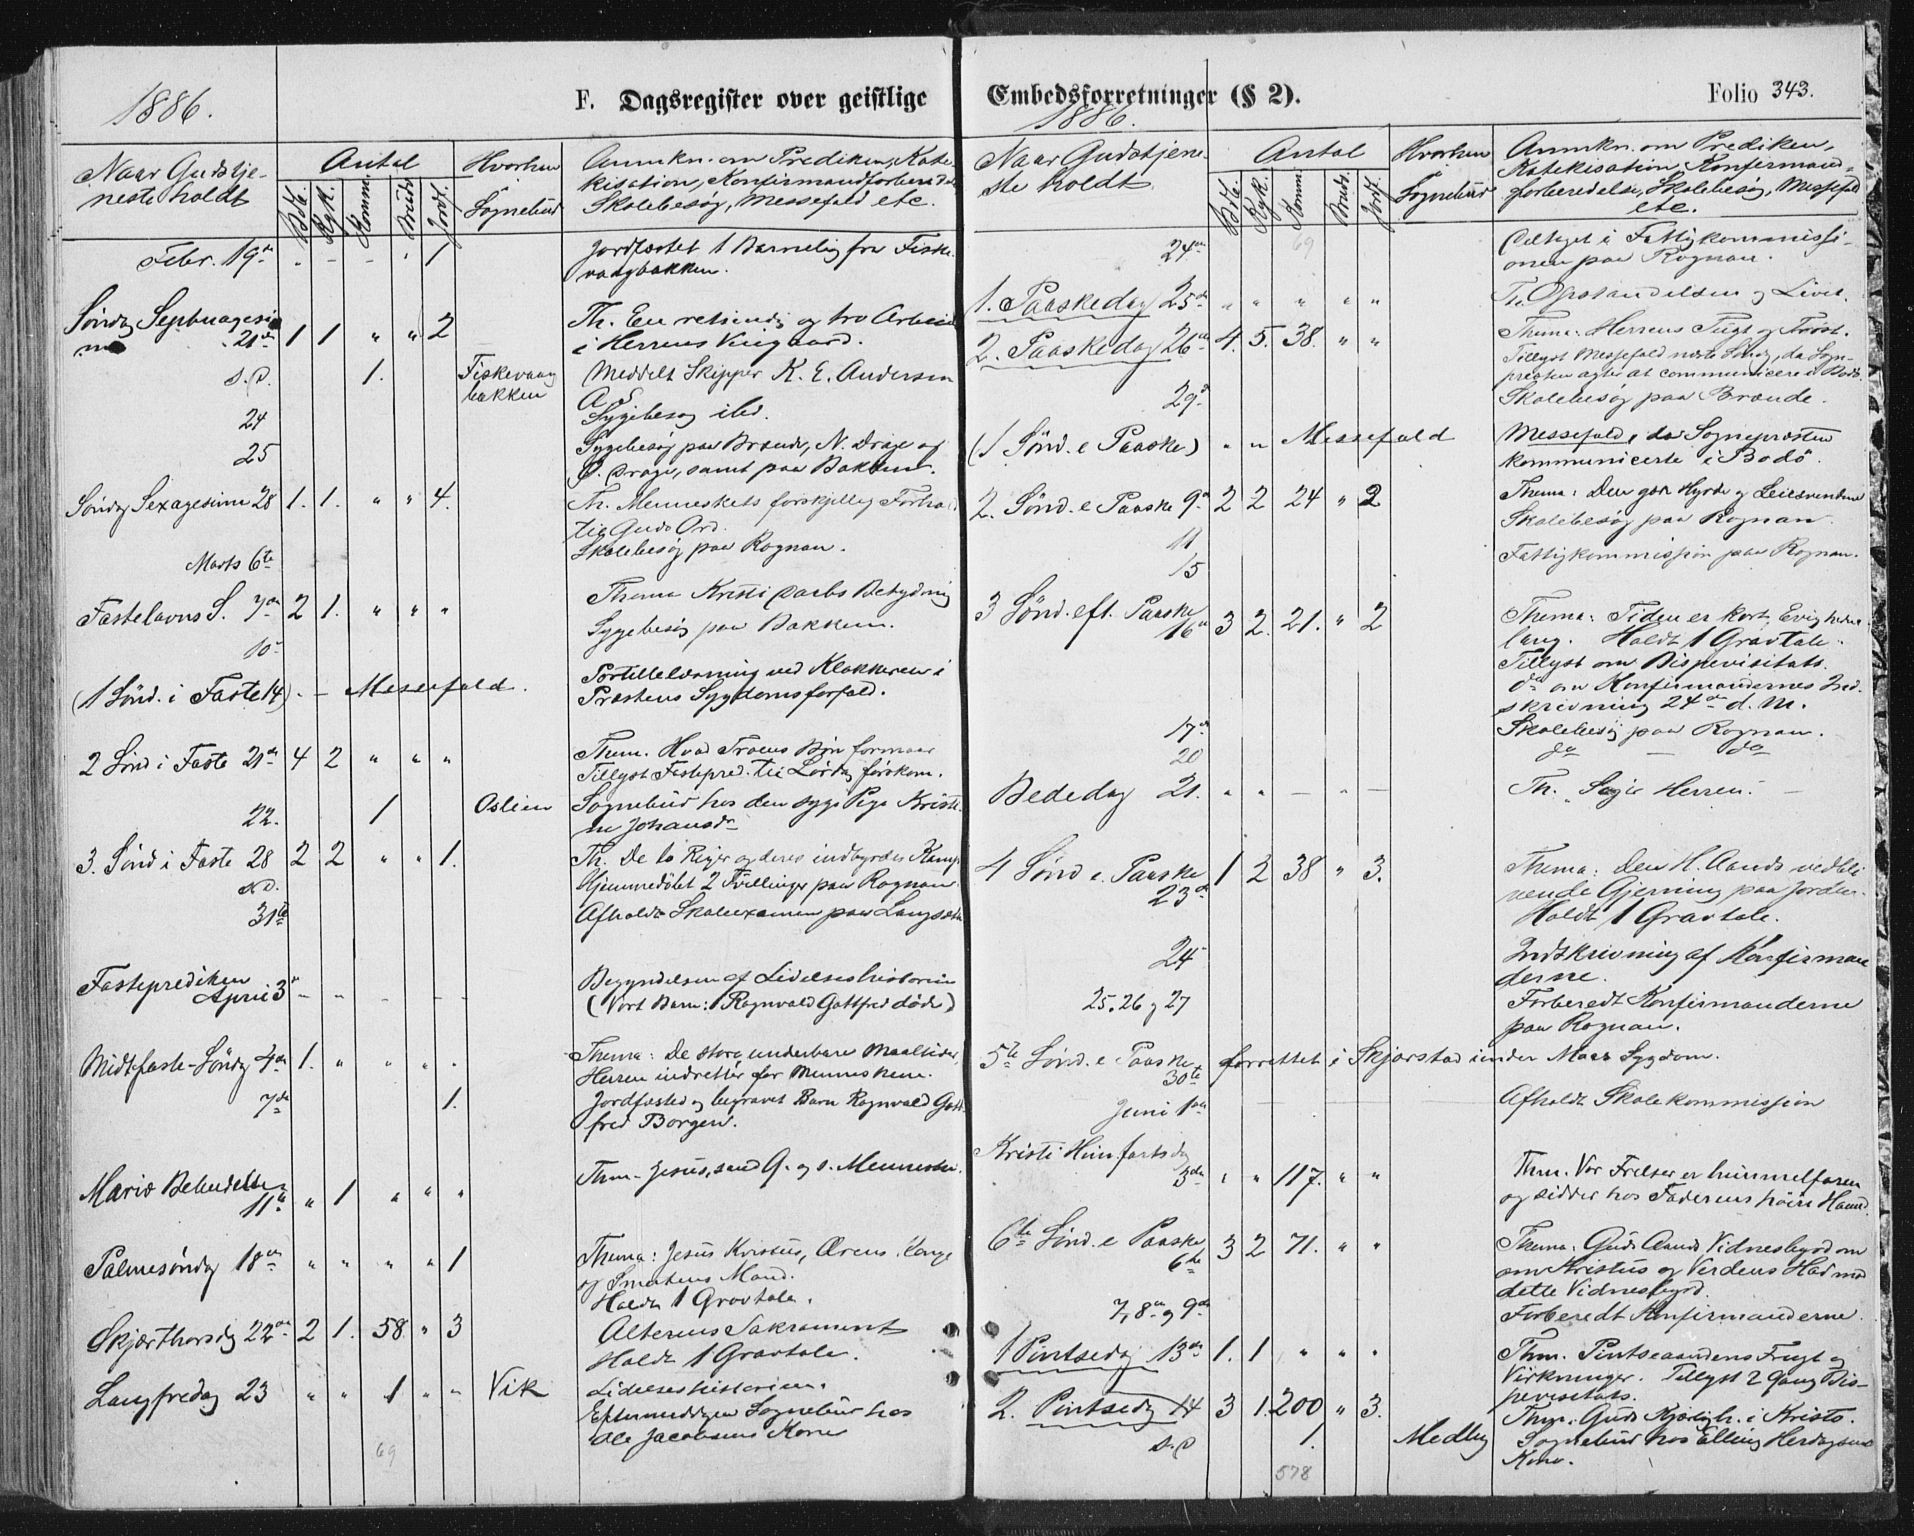 1886.
F. Dagsregister over geistlige
Naar Gudstje-
neste holdt
Antal
Bdt.
Kgk.
Komm.
Brud.
Jordf.
Hvorhen
Sognebud
Anmkn. om Prediken, Kate-
kisation, Konfirmandforberedelse
Skolebesøg, Messefald etc.
Febr. 19de " - - " 1 Jordfæstet 1 Barnelig fra Fiske-
vaagbakken.
Søndag Septuagesi-
ma 21de 1 1 " " 2 Th. En retsindig og tro Arbeid
i Herrens Viingaard.
s.D. 1. Fiskevaag Meddelt Skipper K. E. Andersen
bakken A. S.
24 Sygebesøg ibd.
25 Sygebesøg paa Brænde, N. Drage og
Ø. Drage, samt paa Bakken.
Søndag Sexagesima 28 1. 1. " " 4. Th. Menneskets forskjellig Forhold
til Guds Ord.
Marts 6te Skolebesøg paa Rognan.
Fastelavns S. 7de 2 1. " " " Thema Kristi Daabs Betydning
10de Sygebesøg paa Bakken.
(1 Sønd. i Faste 14) - - Messefald. Portillelæsning ved Klokkeren i
Præstens Sygdomsforfald.
2 Sønd i Faste 21de 4 2 " " " Them. Hvad Troens Bøn formaar
Tillyst Fastepred. til Lørdag førstkom.
22. 1 Oslien Sognebud hos den syge Pige Kristi-
ne Johansdr
3. Sønd i Faste 28 2 2 " " 1. Th. De to Riger og deres indbyrdes Kamp
s.D. Hjemmedøbt 2 Tvillinger paa Rognan.
31te Afholdt Skoleexamen paa Langsæt
Fasteprediken
April 3de - - - - - Begyndelsen af Lidelseshistorien
(Vort Barn: Ragnvald Gottfred døde)
Midtfaste-Søndag 4de 1. " " " " Thema: De store underbare Maaltider,
Herren indretter for Menneskene.
7de 1. Jordfæsted og begravet Barn Ragnvald Gott-
fred Borgen.
Mariæ Bebudelse
11te " 1 " " " Them. Jesus, sand G. og s. Menneske.
Palmesøndag 18de " " " " 1 Thema: Jesus Kristus, Ærens Konge
og Smertens Mand.
Holdt 1 Gravtale.
Skjærthorsdag 22de 2 1. 58 " 3 Alterens Sakrament
Holdt 1 Gravtale.
Langfredag 23 " " 1 " " Vik Lidelseshistorien.
Eftermiddagen Sognebud hos
Ole Jacobsens Kone
69
Embedsforretninger (§ 2).
Folio 343.
1886.
Naar Gudstjene-
ste holdt
Antal
Bdte.
Kgk.
Komm.
Brud.
Jordf.
Hvorhen
Sognebud
Anmkn. om Prediken,
Katekisation, Konfirmand-
forberedelse, Skolebesøg, Messefald
etc.
24de 69 Deltaget i Fattigkommissi-
onen paa Rognan.
1. Paaskedag 25de " " " " " Th. Opstandelsen og Livet.
2. Paaskedag 26de 4. 5. 38. " " Thema: Herrens Frygt og Trøst.
Tillyst Messefald næste Søndag, da Sogn-
præsten agter at communicere i Bodø.
29de Skolebesøg paa Brænde.
(1 Sønd. e Paaske) " " Messefald Messefald, da Sognepræsten
kommunicerte i Bodø.
2. Sønd. e Paaske 9de 2 2 24 " 2 Thema: Den gode Hyrde og Leiesvendene
11 Skolebesøg paa Rognan.
15 Fattigkommission paa Rognan.
3 Sønd. eft. Paaske
16de 3 2. 21. " 2 Thema: Tiden er kort, Evigheden
lang. Holdt 1 Gravtale.
Tillyst om Bispevisitats.
do om Konfirmandernes Ind-
skrivning 24de d. M.
17de Skolebesøg paa Rognan.
20 do — do
Bededag 21. " " — " — Th. Søger Herren. —
4 Sønd e. Paaske
23de 1 2 38 " 3. Thema: Den H. Aands vedbli-
vende Gjerning paa Jorden.
Holdt 1 Gravtale.
24de Indskrivning af Konfirman-
derne.
25. 26 og 27 Forberedt Konfirmanderne
paa Rognan.
5te Sønd. e Paaske
30te forrettet i Skjerstad under Maas Sygdom.
Juni 1ste Afholdt Skolekommission
Kristi Himfartsdag
3die " " 117. " " Them. Vor Frelser er himmelfaren
og sidder hos Faderens høire Haand.
6te Sønd. e Paaske
6te 3 2 71. " " Thema: Guds Aands Vidnesbyrd om
om Kristus og Verdens Had mod
dette Vidnesbyrd.
7, 8de og 9de Forberedt Konfirmanderne.
1 Pintsedag 13de 1. 1 " " " Them. Pintseaandens Frugt og
Virkninger. Tillyst 2 Gang Bis-
pevisitats.
2. Pintsedag 14 3 1. 200 " 3. Them. Guds Kjærligh. i Kristo.
s.D 1. Medby Sognebud hos Elling
Kone.
578